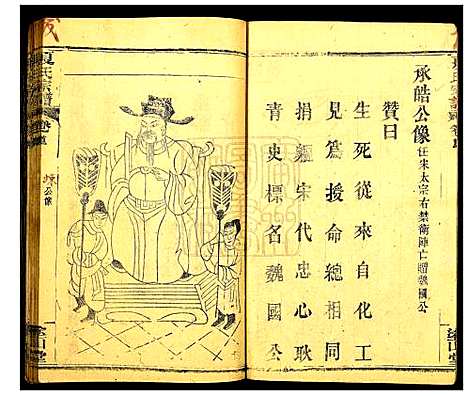 承皓公像 仕宋太宗右禁衛陣亡贈魏國公
贊曰
生死從來自化工
兄爲授命總相同
捐軀宋代忠心耿
青史標名魏國公
塗山堂
夏氏宗譜
公像
塗山堂